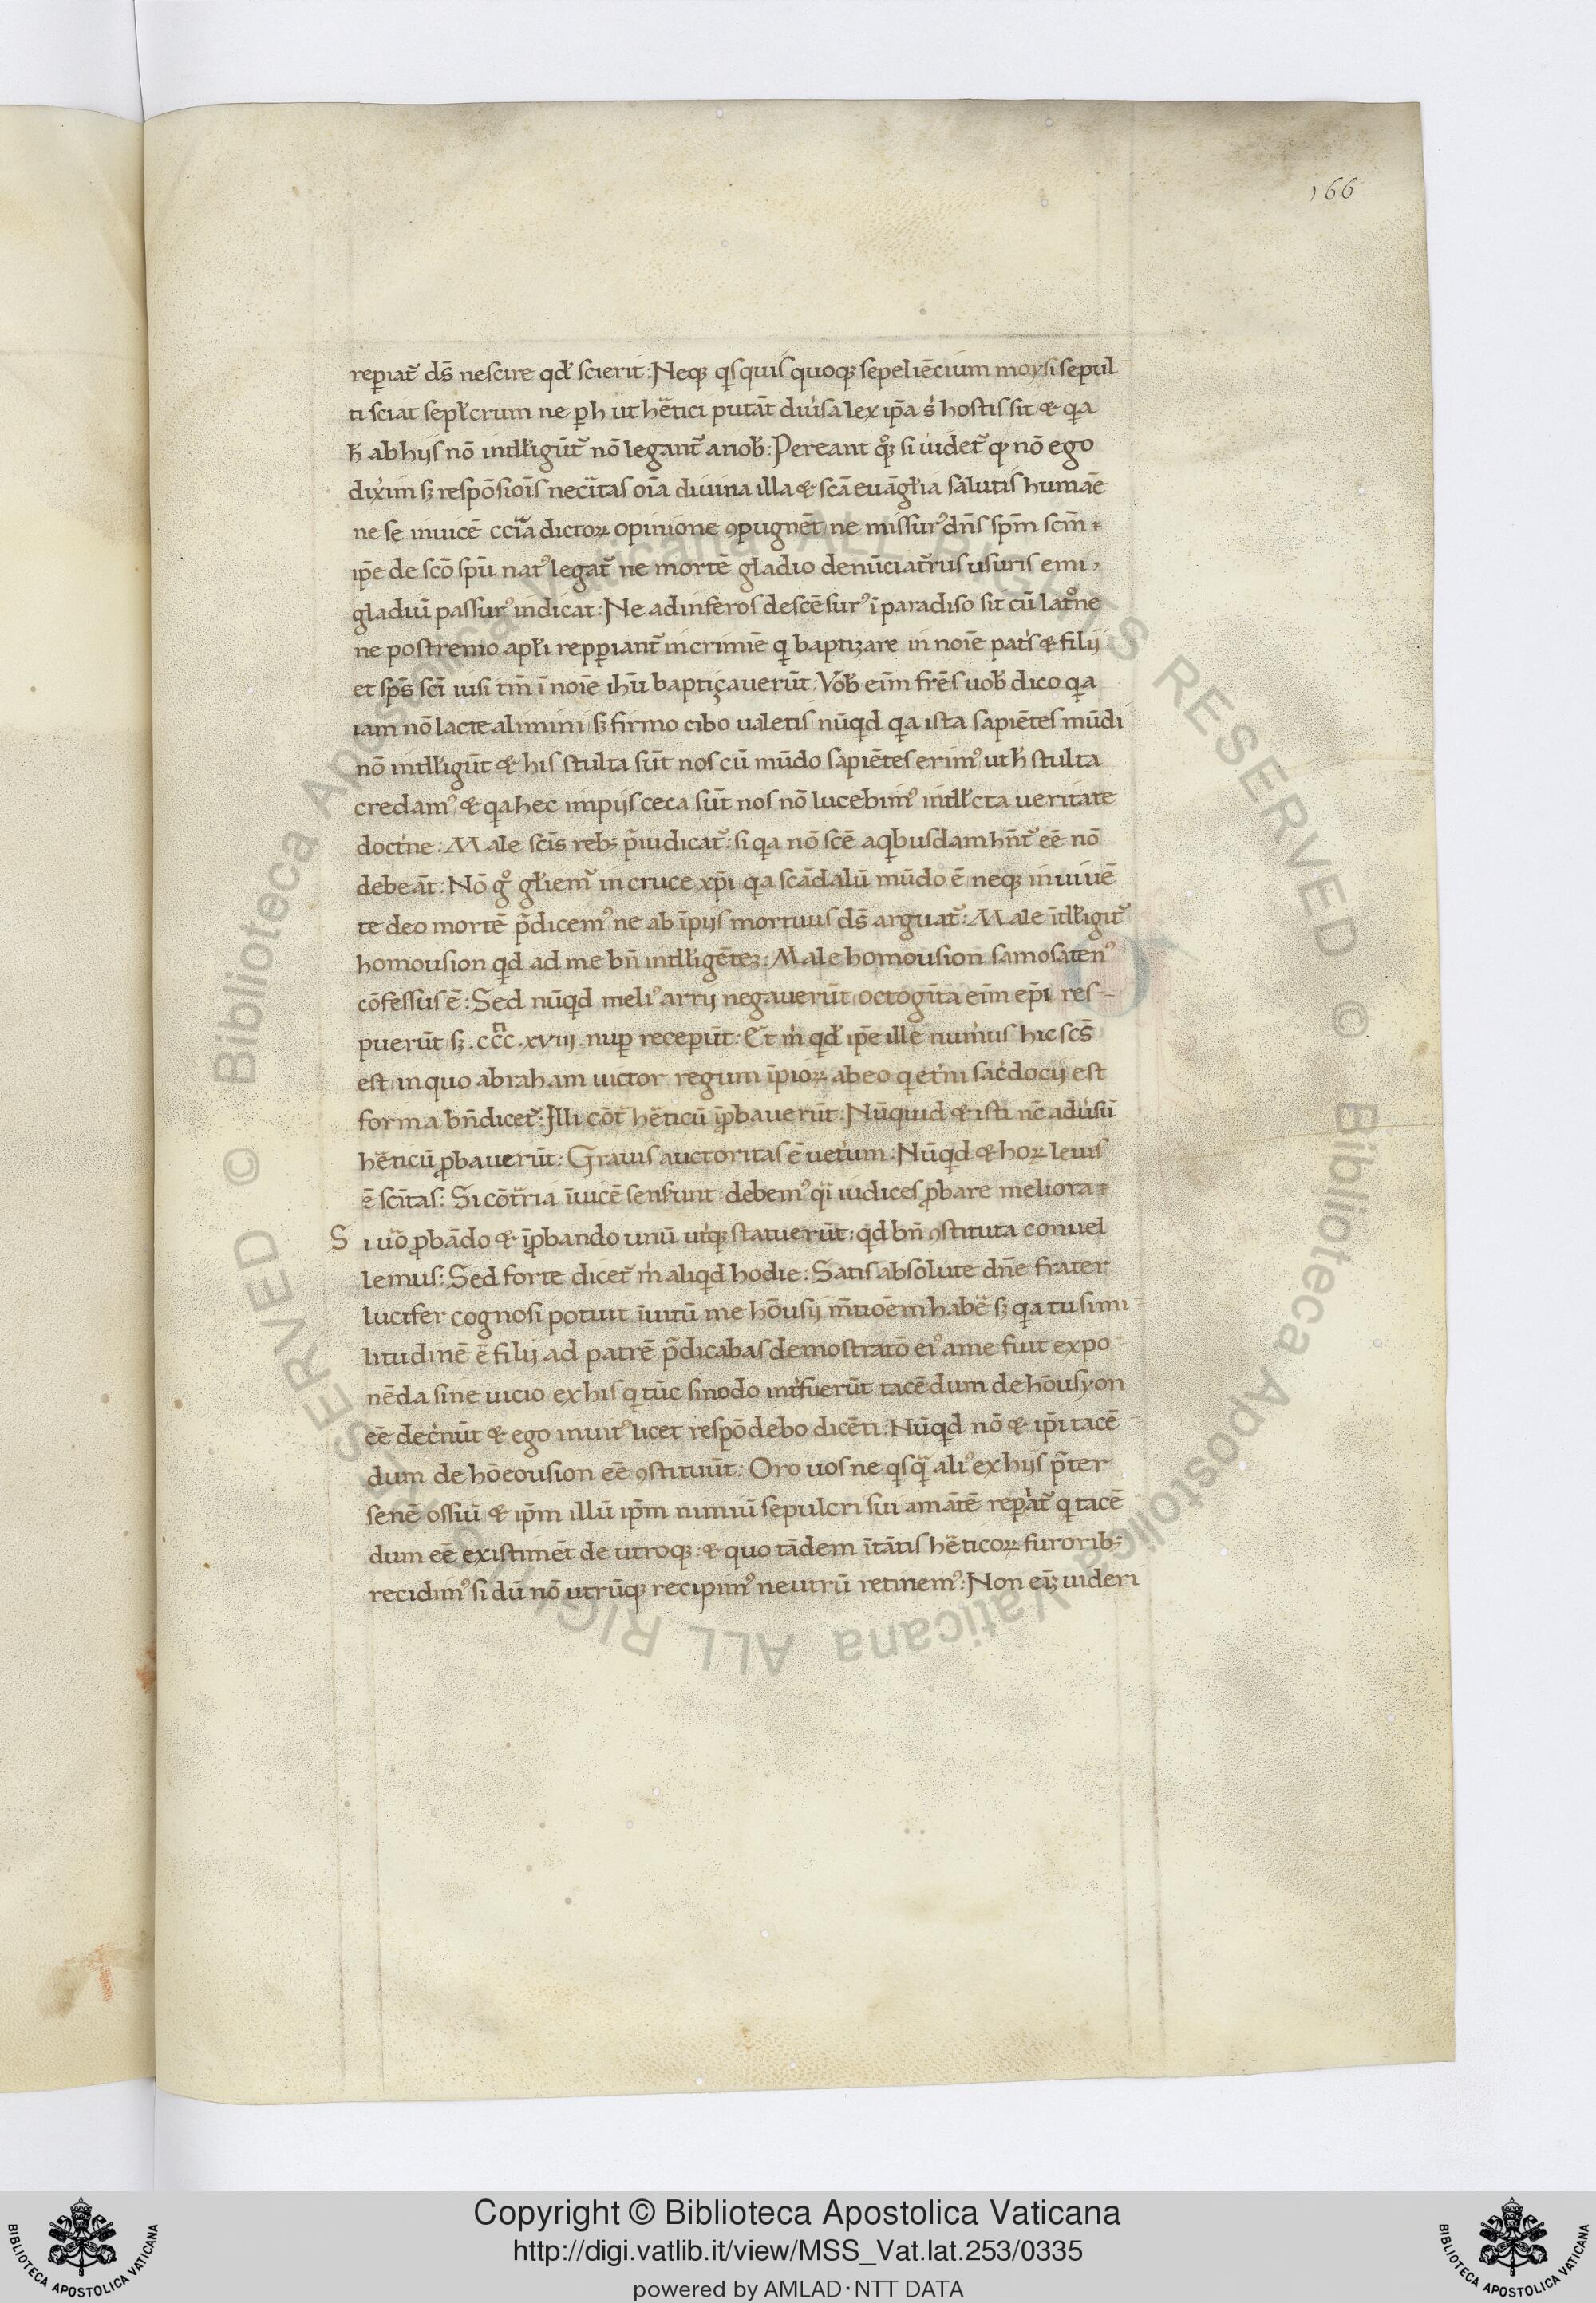 166
rep̱iat᷑ ds̄ nescire qđ scierit: Neqꝫ qͥsquis quoqꝫ sepeliēcium moysi sepul
ti sciat sepłcrum ne ꝑ h ut hetici putāt diuisa lex ip̄a s hostis sit & qͥa
ħ ab hijs nō intłłigūt᷑ nō legant᷑ a nob: Pereant qͦꝫ si uidet᷑ qꝫ nō ego
dixim sꝫ respōsiōis necitas oīa diuina illa & scā euāgłia salutis humāe
ne se inuicē dictoꝝ opinione ꝯpugnēt ne missurꝰ dn̄s sp̄m scm̄
ip̄e de scō spū natꝰ legat᷑ ne mortē gladio denūciat᷑rus usuris emi
gladiū passurꝰ indicat: Ne ad inferos descēsurꝰ ī paradiso sit cū latͦne
ne postremo apłi repp̱iant᷑ in crimīe q baptizare in noīe patis & filij
et sp̄s scī iusi tm̄ ī noīe ihū baptiçauerūt: Vob eīm fr̄es uob dico qͥa
iam nō lacte alimini sꝫ firmo cibo ualetis nūqͥd qͥa ista sapiētes mūdi
nō intłłigūt & his stulta sūt nos cū mūdo sapiētes erimꝰ ut ħ stulta
credamꝰ & qͥa hec impijs ceca sūt nos nō lucebimꝰ intłłcta ueritate
doctͥne: Male scīs rebꝫ p̄iudicat᷑: si qͥa nō scē a qͥbusdam hn̄t᷑ eē nō
debeāt: Nō gͦ głiem᷑ in cruce xp̄i qͥa scādalū mūdo ē neqꝫ in uiuē
te deo mortē p̄dicemꝰ ne ab īpijs mortuus ds̄ arguat᷑: Male ītłłigit᷑
homousion qͥd ad me bn̄ intłłigētez: Male homousion samosatenꝰ
cōfessus ē: Sed nūqͥd meliꝰ arrij negauerūt octogīta eīm ep̄i res-
puerūt sꝫ .ccc.xviij. nuꝑ recep̱ūt: Et m qđ ip̄e ille numus hic scs̄
est in quo abraham uictor regum īpioꝝ ab eo q etni sacdocij est
forma bn̄dicet᷑: Illi cōt hēticū īꝓbauerūt: Nūquid & isti nc̄ adusū
hēticū ꝓbauerūt: Grauis auctoritas ē uetum: Nūqͥd & hoꝝ leuis
ē scītas: Si cōtria īuicē senserunt: debemꝰ qͣi iudices ꝓbare meliora
S i uo ꝓbādo & īꝓbando unū utͥqꝫ statuerūt: qͥd bn̄ ꝯstituta conuel
lemus: Sed forte dicet᷑ m aliqͥd hodie: Satis absolute dn̄e frater
lucifer cognosi potuit īuitū me hōusij m̄tioēm habe sꝫ qͥa tu simi
litudinē ē filij ad patrē p̄dicabas demostratō eiꝰ a me fuit expo
nēda sine uicio ex his q tūc sinodo int̉fuerūt tacēdum de hōusyon
eē decnūt & ego inuitꝰ licet respōdebo dicēti: Nūqͥd nō & ip̄i tacē
dum de hōeousion eē ꝯstituūt: Oro uos ne qͥsqͣ aliꝰ ex hijs p̄ter
senē ossiū & ip̄m illū ip̄m nimiū sepulcri sui amātē rep̱iat᷑ q tacē
dum eē existimēt de utroqꝫ: & quo tādem ītātis heticoꝝ furoribꝫ
recidimꝰ si dū nō utrūqꝫ recipimꝰ neutrū retinemꝰ: Non eīꝫ uideri
© Biblioteca Apostolica Vaticana ALL RIGHTS RESERVED © Biblioteca Apostolica Vaticana ALL RIGHTS RESERVED
BIBLIOTECA APOSTOLICA VATICANA
Copyright © Biblioteca Apostolica Vaticana
http://digi.vatlib.it/view/MSS_Vat.lat.253/0335
powered by AMLAD·NTT DATA
BIBLIOTECA APOSTOLICA VATICANA